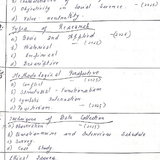 c) Objectivity in Social Science - (
d) Value neutrality
Types of Research
a) Basic and Applied -
b) Historical
c) Empirical
d) Descriptive
Methodological Perspective
a) Conflict
b) Structural - Functionalism
c) Symbolic Interaction
d) Positivism
Techniques of Data Collection
a) Observation
b) Questionnaire and Interview Schedule
c) Survey
d) Case Study